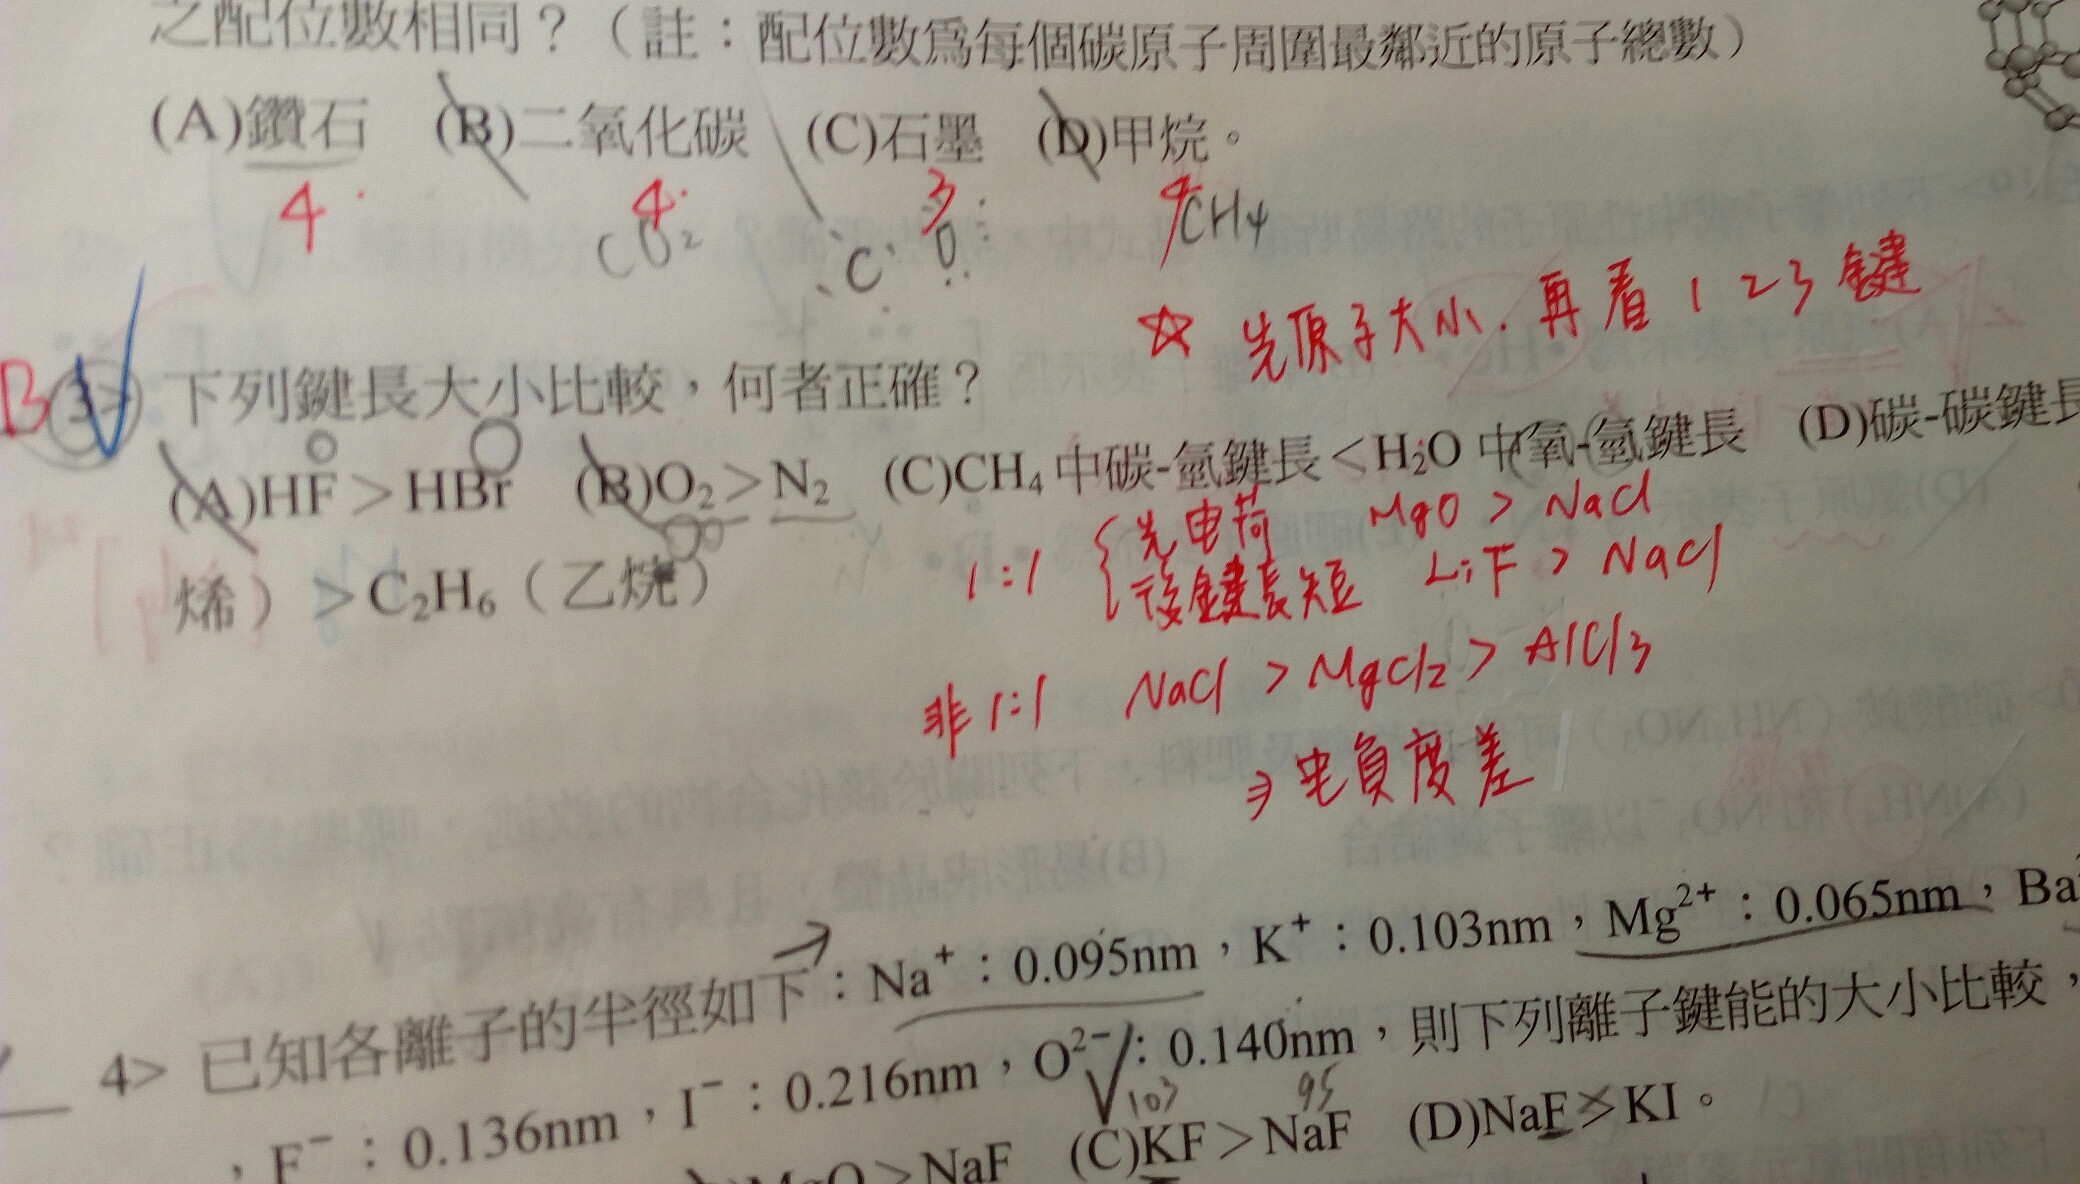 之配位數相同？（註：配位數為每個碳原子周圍最鄰近的原子總數）
(A)鑽石 (B)二氧化碳 (C)石墨 (D)甲烷。
4 4 3 4
CO2 C O CH4
☆ 先原子大小. 再看 1 2 3 鍵
B 3> 下列鍵長大小比較，何者正確？
(A)HF＞HBr (B)O₂＞N₂ (C)CH₄中碳-氫鍵長＜H₂O中氧-氫鍵長 (D)碳-碳鍵長
1:1 { 先电荷 MgO > NaCl
後鍵長短 LiF > NaCl
烯）＞C₂H₆（乙烷）
非1:1 NaCl > MgCl2 > AlCl3
⇒ 电負度差
4> 已知各離子的半徑如下：Na⁺：0.095nm，K⁺：0.103nm，Mg²⁺：0.065nm，Ba
，F⁻：0.136nm，I⁻：0.216nm，O²⁻：0.140nm，則下列離子鍵能的大小比較，
103 95
MgO＞NaF (C)KF＞NaF (D)NaF＞KI。